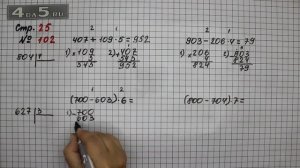 Стр. 25
№ 102
2 1
407 + 109 · 5 = 952
1) × 109
5
545
2) + 407
545
952
2 1
903 - 206 · 4 = 79
1) × 206
4
824
2) - 903
824
79
804
627
1 2
(700 - 603) · 6 =
1) - 700
603
(800 - 704) · 7 =